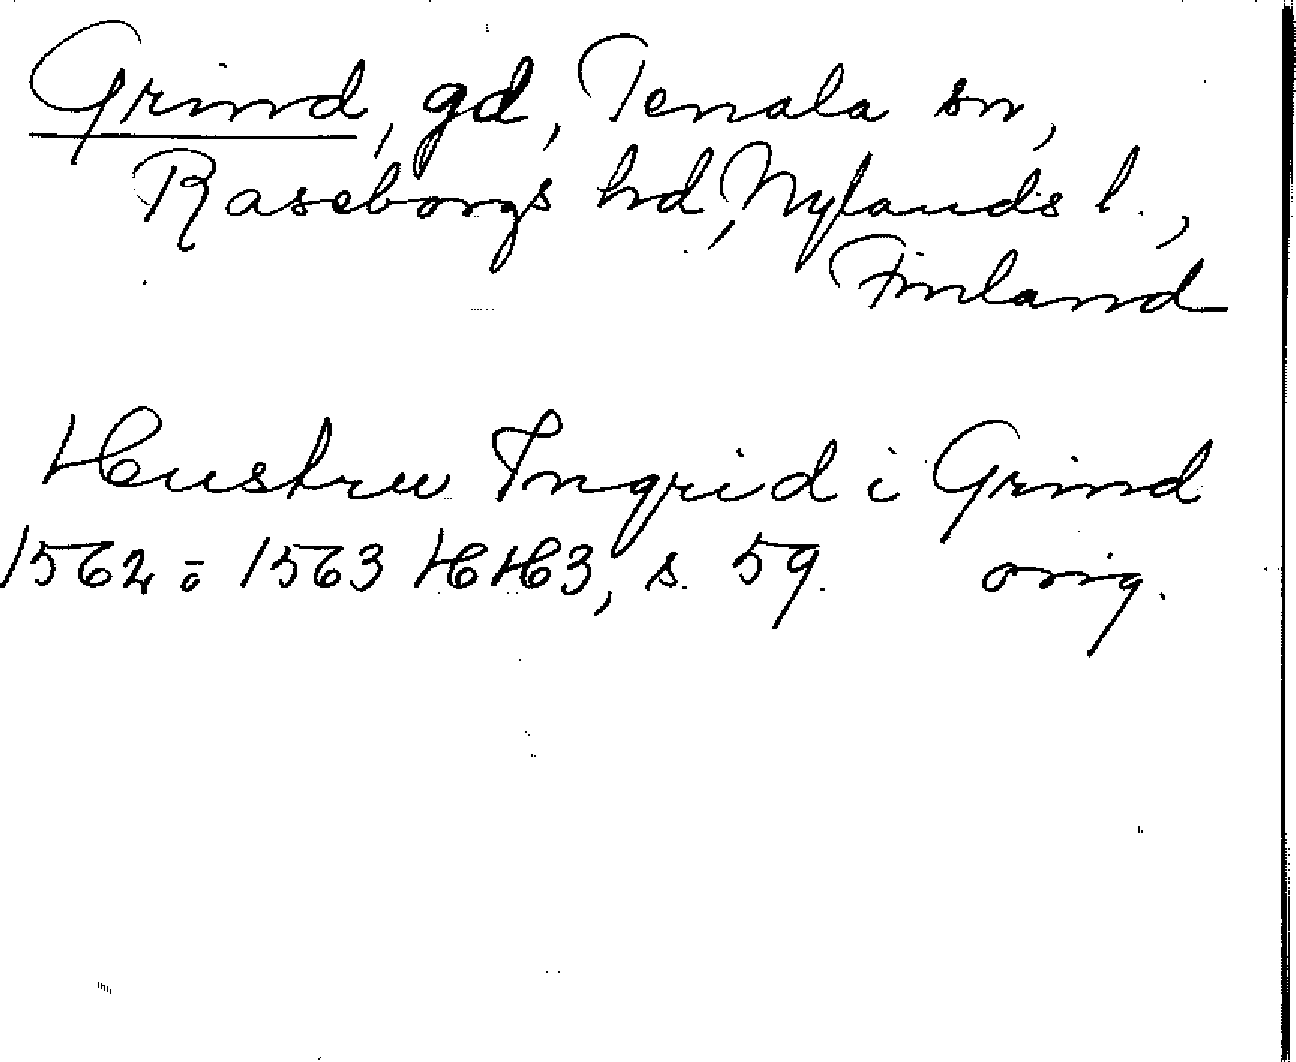 Grind, gd, Tenala sn,
Raseborgs hd, Nylands l.,
Finland
Hustru Ingrid i Grind
1562 ō 1563 HH3, s. 59. orig.